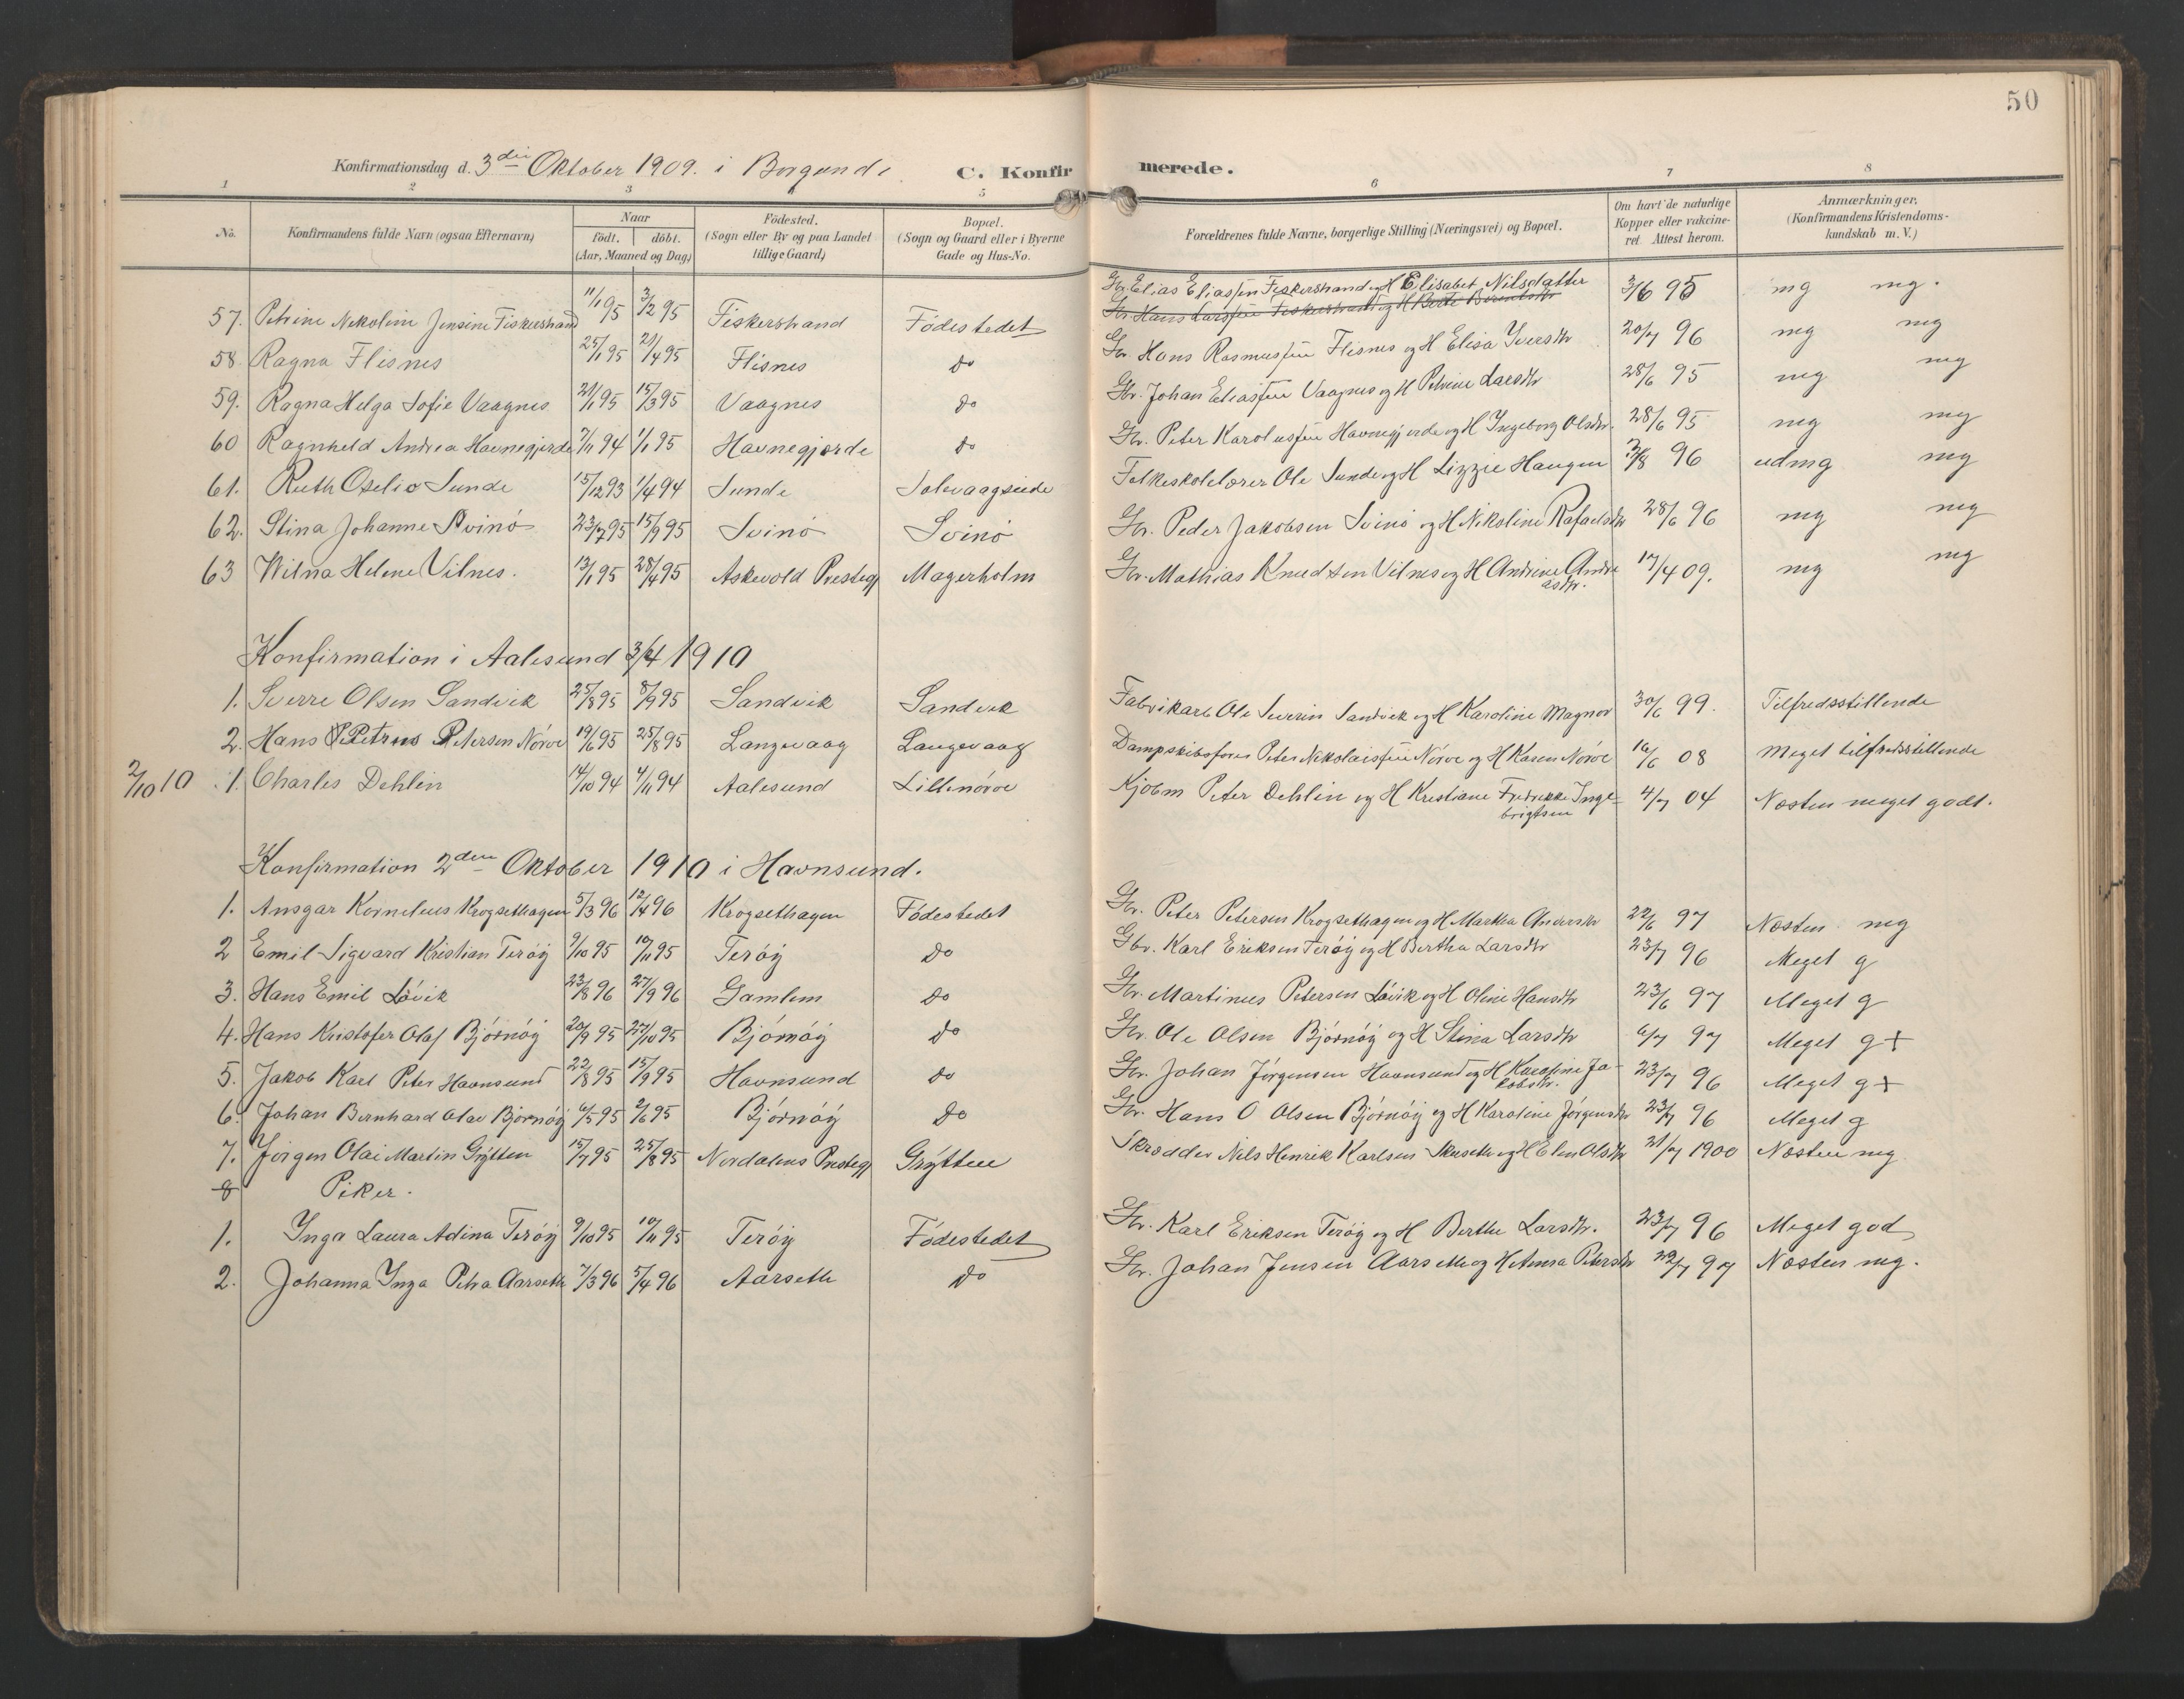 50
Konfirmationsdag d. 3die Oktober 1909. i Borgund. C. Konfirmerede.
1 2 3 5 6 7 8
No. Konfirmandens fulde Navn (ogsaa Efternavn) Naar födt. döbt. (Aar, Maaned og Dag) Födested. (Sogn eller By og paa Landet tillige Gaard) Bopæl. (Sogn og Gaard eller i Byerne Gade og Hus-No. Forældrenes fulde Navne, borgerlige Stilling (Næringsvei) og Bopæl. Om havt de naturlige Kopper eller vakcineret. Attest herom. Anmærkninger. (Konfirmandens Kristendomskundskab m. V.)
57. Petrine Nekoline Jensine Fiskerstrand 11/1 95 3/2 95 Fiskerstrand Födestedet Gbr. Elias Eliassen Fiskerstrand og H Elisabet Nilsdatter 3/6 95 mg mg.
Gbr. Hans Larssen Fiskerstrand og H Berte Berentsdtr
58 Ragna Flisnes 25/1 95 21/4 95 Flisnes do Gbr. Hans Rasmussen Flisnes og H Elisa Iversdtr 20/7 96 mg mg
59. Ragna Helga Sofie Vaagnes 21/1 95 15/3 95 Vaagnes do Gbr. Johan Eliassen Vaagnes og H Petrine Larsdtr 28/6 95 mg mg
60 Ragnheld Andrea Havnegjerde 7/11 94 1/1 95 Havnegjærde do Gbr. Peter Karolussen Havnegjerde og H Ingeborg Olsdtr. 28/6 95 mg mg
61. Ruth Oselio Sunde 15/12 93 1/4 94 Sunde Solevaagseide Folkeskolelærer Ole Sunde og H Lizzie Haugen 3/8 96 udmg mg
62. Stina Johanne Svinö 23/7 95 15/9 95 Svinö Svinö Gbr. Peder Jakobsen Svinö og H Nikoline Rafaelsdtr 28/6 96 mg mg
63 Wilna Helene Vilnes. 13/1 95 28/4 95 Askevold Prestegj Magerholm Gbr. Mathias Knudsen Vilnes og H Andrine Andreasdtr. 17/4 09. mg mg
Konfirmation i Aalesund 3/4 1910
1. Sverre Olsen Sandvik 25/8 95 8/9 95 Sandvik Sandvik Fabrikarb Ole Severin Sandvik og H Karoline Magnor 30/6 99. Tilfredsstillende
2. Hans Petrus Petersen Nörve 19/6 95 25/8 95 Langevaag Langevaag Dampskibsfører Peter Nikolaissen Nörve og H Karen Nörve 16/6 08 Meget tilfredsstillende
2/10 10 1. Charles Dehlin 14/10 94 4/11 94 Aalesund Lillenörve Kjøbm Peter Dehlin og H Kristiane Fredrikke Ingebrigtsen 4/7 04 Næsten meget godt.
Konfirmation 2den Oktober 1910 i Havnsund.
1. Ansgar Kornelius Krogsethagen 5/3 96 12/4 96 Krogsethagen Födestedet Gbr. Peter Petersen Krogsethagen og H Martha Andersdtr 22/6 97 Næsten mg
2 Emil Sigvard Kristian Teröy 9/10 95 10/11 95 Teröy do Gbr. Karl Eriksen Teröy og H Bertha Larsdtr 23/7 96 Meget g
3. Hans Emil Lövik 23/8 96 27/9 96 Gamlem do Gbr. Martinus Petersen Lövik og H Oline Hansdtr 23/6 97 Meget g
4. Hans Kristofer Olaf Björnöy 20/9 95 27/10 95 Björnöy do Gbr. Ole Olsen Björnöy og H Stina Larsdtr 6/7 97 Meget g +
5. Jakob Karl Peter Havnsund 22/8 95 15/9 95 Havnsund do Gbr. Johan Jörgensen Havnsund og H Karoline Jakobsdtr. 23/7 96 Meget g +
6. Johan Bernhard Olav Björnöy 6/5 95 2/6 95 Björnöy do Gbr. Hans O Olsen Björnöy og H Karoline Jörgensdtr 23/7 96 Meget g
7. Jörgen Olai Martin Grytten 15/7 95 25/8 95 Nordalens Prestegj Grytten Skrædder Nils Henrik Karlsen Skuseth og H Elen Olsdtr 21/7 1900 Næsten mg
8 Piker.
1. Inga Laura Adina Teröy 9/10 95 10/11 95 Teröy Födestedet Gbr. Karl Eriksen Teröy og H Berthe Larsdtr. 23/7 96 Meget god
2. Johanna Inga Petra Aarseth 7/3 96 5/4 96 Aarseth do Gbr. Johan Jensen Aarseth og H Anna Petersdtr 22/7 97 Næsten mg.